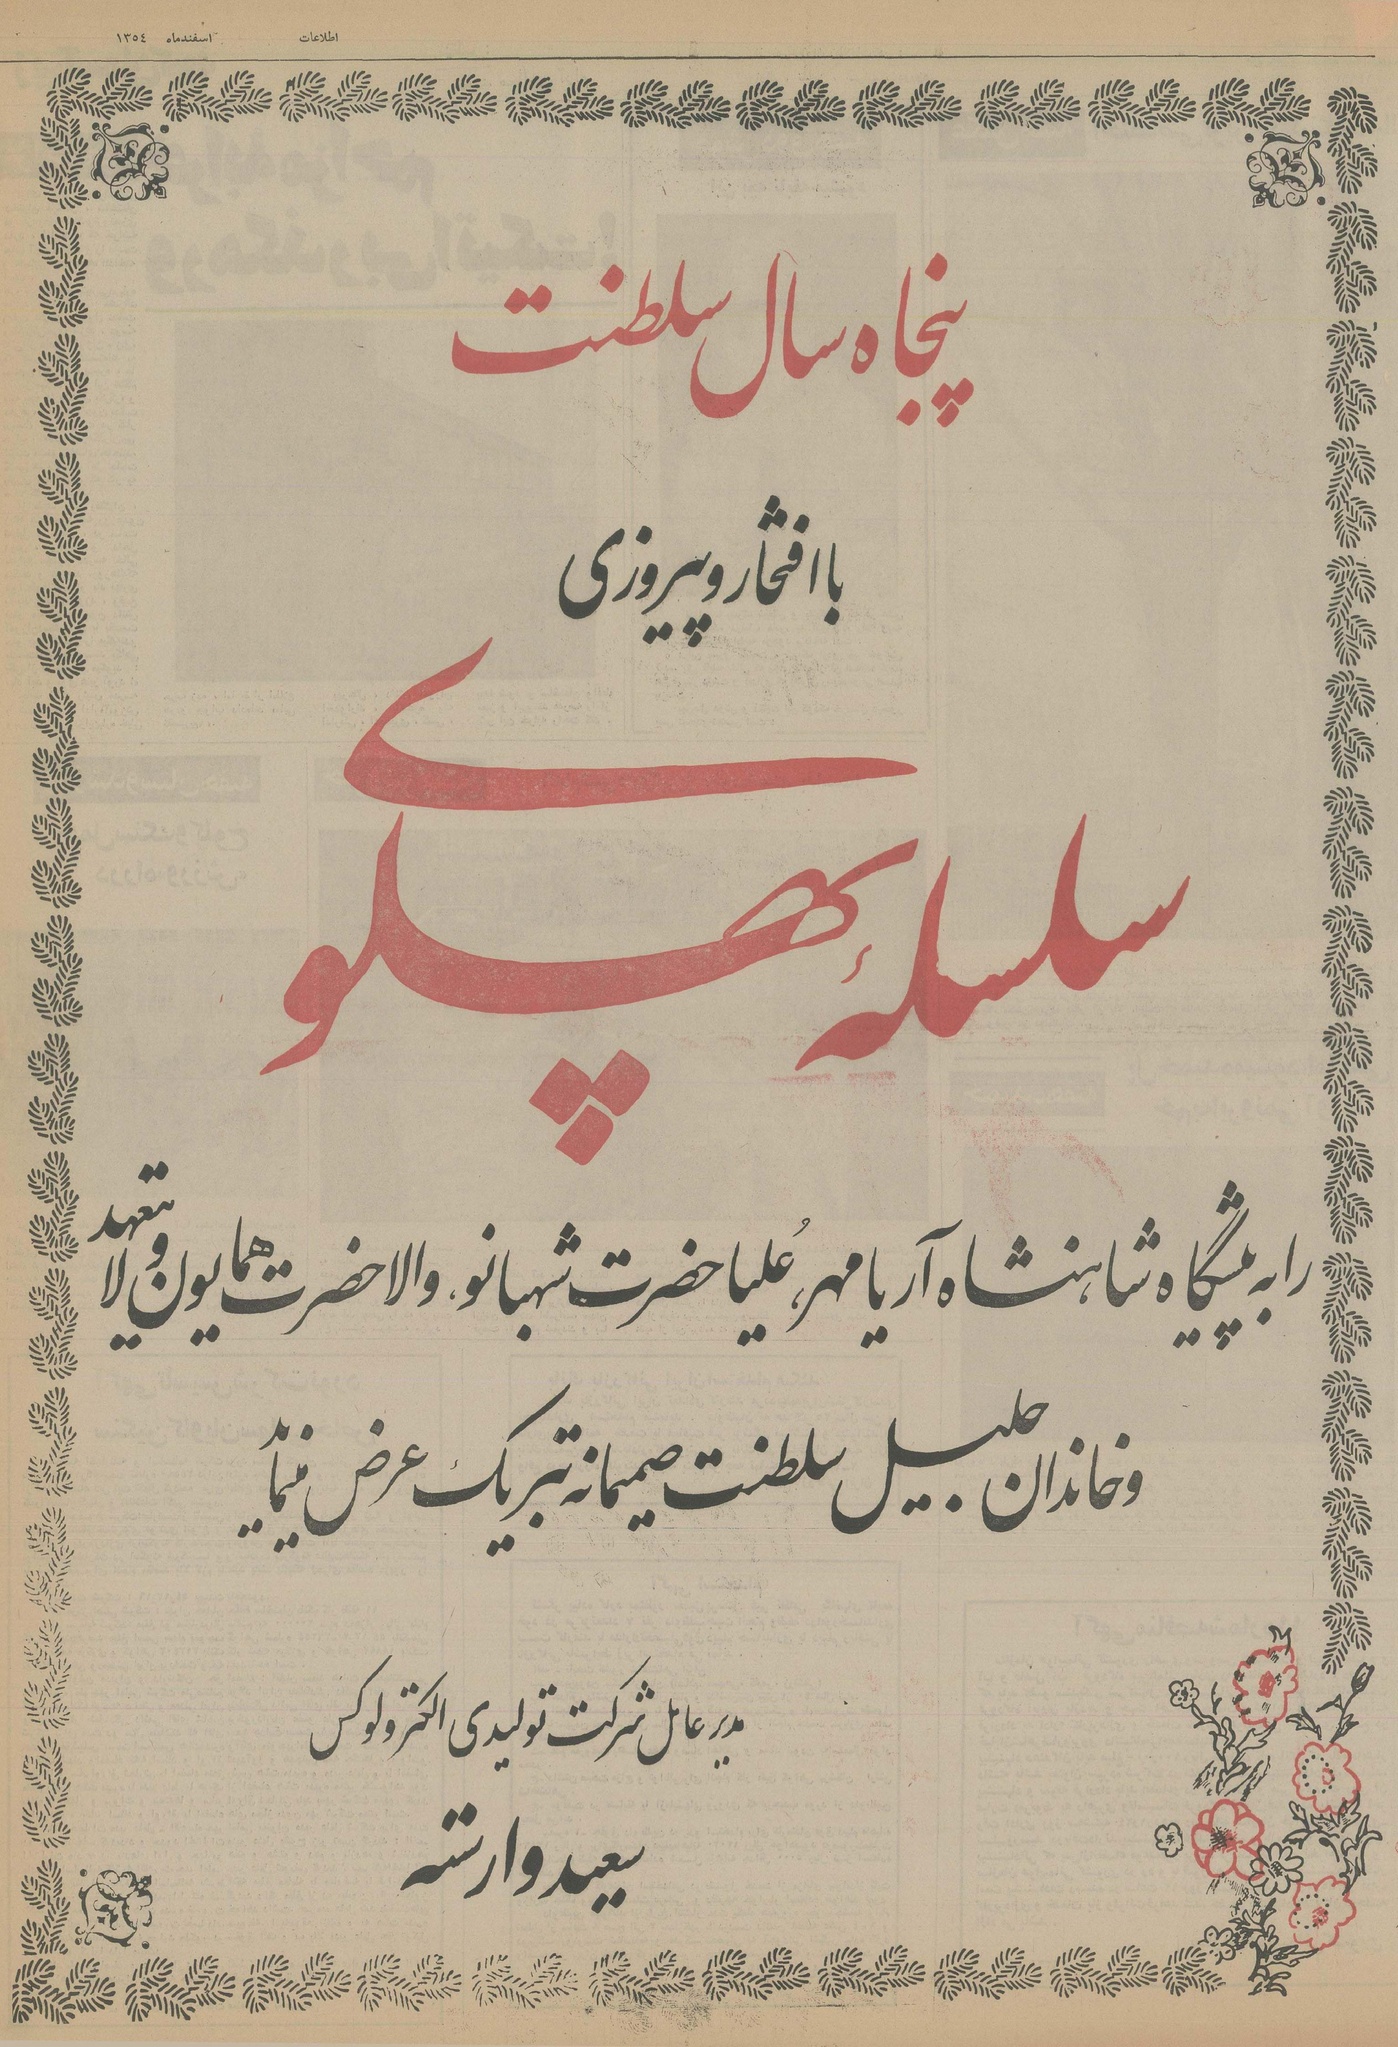 اطلاعات اسفندماه ۱۳۵٤
پنجاه سال سلطنت
با افتخار و پیروزی
سلسلهٔ پهلوی
را به پیشگاه شاهنشاه آریامهر، عُلیاحضرت شهبانو، والاحضرت همایون ولایتعهد
و خاندان جلیل سلطنت صمیمانه تبریک عرض مینماید
مدیر عامل شرکت تولیدی الکترولوکس
سعید وارسته